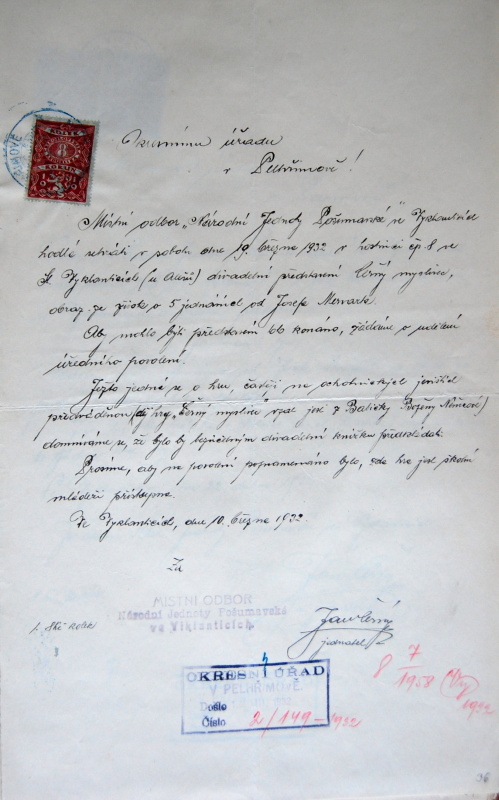 KOLEK
8
KORUN
1931
Okresnímu úřadu
v Pelhřimově!
Místní odbor „Národní Jednoty Pošumavské" ve Vyklanticích
hodlá sehráti v sobotu dne 19. března 1932 v hostinci čp. 8 ve
St. Vyklanticích divadelní představení „Černý myslivec",
obraz ze života o 5 jednáních od Josefa
Aby mohlo býti představení to konáno, žádáme o udělení
úředního povolení.
Ježto jedná se o hru, častěji na ochotnických jevištích
předváděnou hry „Černý myslivec" vzat jest z Babičky Boženy Němcové)
domníváme se, že bylo by zbytečným divadelní knížku předkládat.
Prosíme, aby na povolení poznamenáno bylo, zda hra jest školní
mládeži přístupna.
Ve Vyklanticích, dne 10. března 1932.
Za
MÍSTNÍ ODBOR
Národní Jednoty Pošumavské
ve Viklanticích.
1. 8Kč kolek
Jan Černý
jednatel
OKRESNÍ ÚŘAD
V PELHŘIMOVĚ.
Došlo
Číslo 2/149-1932
8 7
1958
1932
96